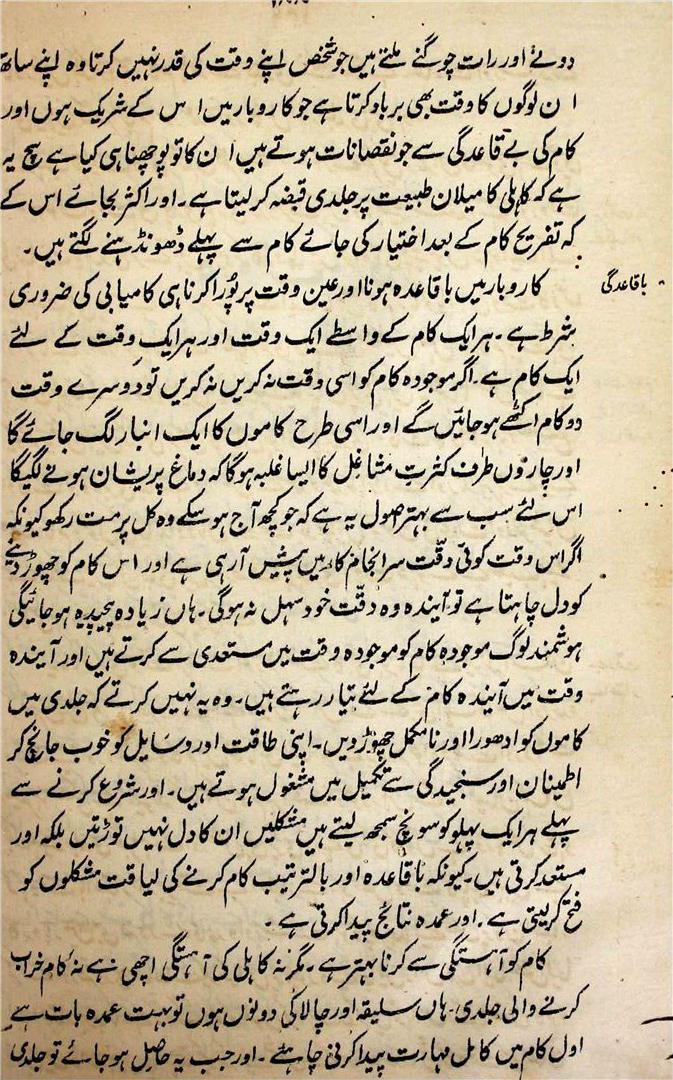 دونے اور رات چوگنے ملتے ہیں جو شخص اپنے وقت کی قدر نہیں کرتا وہ اپنے ساتھ
ان لوگوں کا وقت بھی برباد کرتا ہے جو کاروبار میں اس کے شریک ہوں اور
کام کی بے قاعدگی سے جو نقصانات ہوتے ہیں ان کا تو پوچھنا ہی کیا ہے سچ یہ
ہے کہ کاہلی کا میلان طبیعت پر جلدی قبضہ کر لیتا ہے۔ اور اکثر بجائے اس کے
کہ تفریح کام کے بعد اختیار کی جائے کام سے پہلے ڈھونڈہنے لگتے ہیں۔
باقاعدگی
کاروبار میں باقاعدہ ہونا اور عین وقت پر پُورا کرنا ہی کامیابی کی ضروری
شرط ہے۔ ہر ایک کام کے واسطے ایک وقت اور ہر ایک وقت کے لئے
ایک کام ہے۔ اگر موجودہ کام کو اسی وقت نہ کریں نہ کریں تو دوسرے وقت
دو کام اکٹھے ہو جائیں گے اور اسی طرح کاموں کا ایک انبار لگ جائے گا
اور چاروں طرف کثرت مشاغل کا ایسا غلبہ ہوگا کہ دماغ پریشان ہونے لگیگا
اس لئے سب سے بہتر صول یہ ہے کہ جو کچھ آج ہو سکے وہ کل پر مت رکھو کیونکہ
اگر اس وقت کوئی دقّت سرانجام کار میں پیش آ رہی ہے اور اس کام کو چھوڑ دینے
کو دل چاہتا ہے تو آیندہ وہ دقّت خود سہل نہ ہوگی۔ ہاں زیادہ پیچیدہ ہو جائیگی
ہوشمند لوگ موجودہ کام کو موجودہ وقت میں مستعدی سے کرتے ہیں اور آیندہ
وقت میں آیندہ کام کے لئے تیار رہتے ہیں۔ وہ یہ نہیں کرتے کہ جلدی میں
کاموں کو ادھورا اور نامکمل چھوڑ دیں۔ اپنی طاقت اور وسایل کو خوب جانچ کر
اطمینان اور سنجیدگی سے تکمیل میں مشغول ہوتے ہیں۔ اور شروع کرنے سے
پہلے ہر ایک پہلو کو سونچ سمجھ لیتے ہیں مشکلیں ان کا دل نہیں توڑتیں بلکہ اور
مستعد کرتی ہیں۔ کیونکہ باقاعدہ اور بالترتیب کام کرنے کی لیاقت مشکلوں کو
فتح کر لیتی ہے۔ اور عمدہ نتائج پیدا کرتی ہے۔
کام کو آہستگی سے کرنا بہتر ہے۔ مگر نہ کاہلی کی آہستگی اچھی ہے نہ کام خراب
کرنے والی جلدی۔ ہاں سلیقہ اور چالاکی دونوں ہوں تو بہت عمدہ بات ہے
اول کام میں کامل مہارت پیدا کرنی چاہئے۔ اور جب یہ حاصل ہو جائے تو جلدی